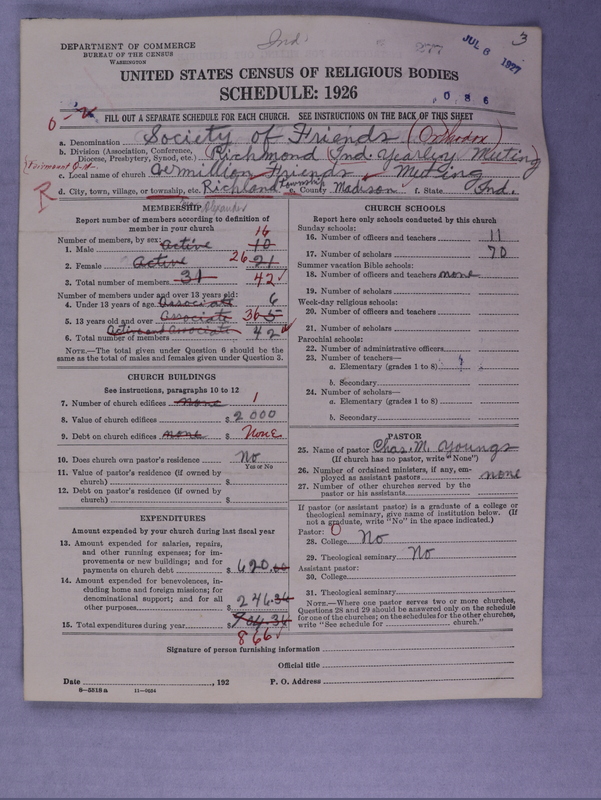 DEPARTMENT OF COMMERCE
BUREAU OF THE CENSUS
WASHINGTON
Ind.
277
JUL 6 1927
3
UNITED STATES CENSUS OF RELIGIOUS BODIES
SCHEDULE: 1926
FILL OUT A SEPARATE SCHEDULE FOR EACH CHURCH. SEE INSTRUCTIONS ON THE BACK OF THIS SHEET
a. Denomination Society of Friends (Orthodox)
b. Division (Association, Conference, Diocese, Presbytery, Synod, etc.) Richmond (Ind. Yearly Meeting)
c. Local name of church Vermillion Friends Meeting
R
d. City, town, village, or township, etc. Richland Township e. County Madison f. State Ind.
MEMBERSHIP
Report number of members according to definition of member in your church
Number of members, by sex:
1. Male Active 10 16
2. Female Active 26 21
3. Total number of members 31 42
Number of members under and over 13 years old:
4. Under 13 years of age Associate 6
5. 13 years old and over Associate 36 5
Active and Associate
6. Total number of members 42
NOTE.—The total given under Question 6 should be the same as the total of males and females given under Question 3.
CHURCH BUILDINGS
See instructions, paragraphs 10 to 12
7. Number of church edifices none 1
8. Value of church edifices $ 2000
9. Debt on church edifices none $ None
10. Does church own pastor's residence No
Yes or No
11. Value of pastor's residence (if owned by church) $
12. Debt on pastor's residence (if owned by church) $
EXPENDITURES
Amount expended by your church during last fiscal year
13. Amount expended for salaries, repairs, and other running expenses; for improvements or new buildings; and for payments on church debt $ 620.00
14. Amount expended for benevolences, including home and foreign missions; for denominational support; and for all other purposes $ 246.34
15. Total expenditures during year $
866
CHURCH SCHOOLS
Report here only schools conducted by this church
Sunday schools:
16. Number of officers and teachers 11
17. Number of scholars 70
Summer vacation Bible schools:
18. Number of officers and teachers none
19. Number of scholars
Week-day religious schools:
20. Number of officers and teachers
21. Number of scholars
Parochial schools:
22. Number of administrative officers
23. Number of teachers—
a. Elementary (grades 1 to 8)
b. Secondary
24. Number of scholars—
a. Elementary (grades 1 to 8)
b. Secondary
PASTOR
25. Name of pastor Chas. M. Youngs
(If church has no pastor, write "None")
26. Number of ordained ministers, if any, employed as assistant pastors none
27. Number of other churches served by the pastor or his assistants
If pastor (or assistant pastor) is a graduate of a college or theological seminary, give name of institution below. (If not a graduate, write "No" in the space indicated.)
Pastor: 0
28. College No
29. Theological seminary No
Assistant pastor:
30. College
31. Theological seminary
NOTE.—Where one pastor serves two or more churches, Questions 28 and 29 should be answered only on the schedule for one of the churches; on the schedules for the other churches, write "See schedule for church."
Signature of person furnishing information
Official title
Date , 192 P. O. Address
8—5518a 11—0034